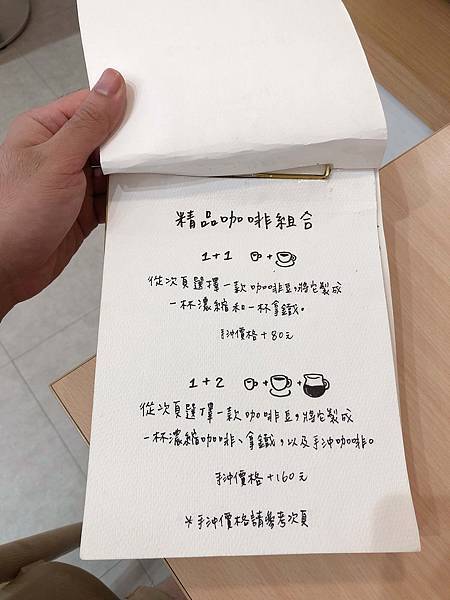 精品咖啡組合
1+1 +
從次頁選擇一款咖啡豆,將它製成
一杯濃縮和一杯拿鐵。
手沖價格+80元
1+2 + +
從次頁選擇一款咖啡豆,將它製成
一杯濃縮咖啡、拿鐵,以及手沖咖啡。
手沖價格+160元
*手沖價格請參考次頁